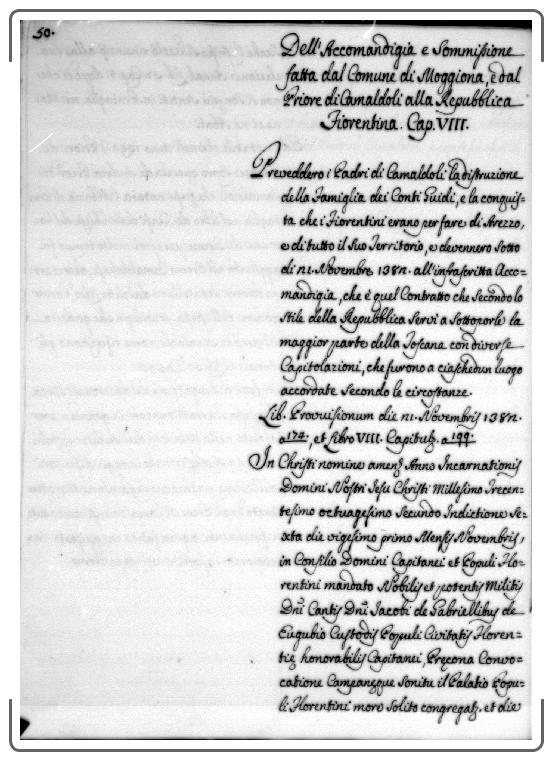 50.
Dell'Accomandigia e Sommissione
fatta dal Comune di Moggiona, e dal
Priore di Camaldoli alla Repubblica
Fiorentina. Cap. VIII.
Preveddero i Padri di Camaldoli la distruzione
della Famiglia dei Conti Guidi, e la conquis-
ta che i Fiorentini erano per fare di Arezzo,
e di tutto il suo Territorio, e devennero sotto
di 21. Novembre 1382. all'infrascritta Acco-
mandigia, che è quel Contratto che secondo lo
stile della Repubblica servì a sottoporle la
maggior parte della Toscana con diverse
Capitolazioni, che furono a ciaschedun luogo
accordate secondo le circostanze.
Lib. Provvisionum die 21. Novembris 1382.
a 174., et Libro VIII. Capitul. a 199.
In Christi nomine amen. Anno Incarnationis
Domini Nostri Jesu Christi Millesimo Trecen-
tesimo octuagesimo secundo Indictione se-
xta die vigesimo primo Mensis Novembris,
in Consilio Domini Capitanei et Populi Flo-
rentini mandato Nobilis et potentis Militis
Dni Cantis Dni Jacobi de Gabriellibus de
Eugubio Custodis Populi Civitatis Floren-
tie honorabilis Capitanei, Precona Convo-
catione Campaneque Sonitu in Palatio Popu-
li Florentini more solito congregat. et die